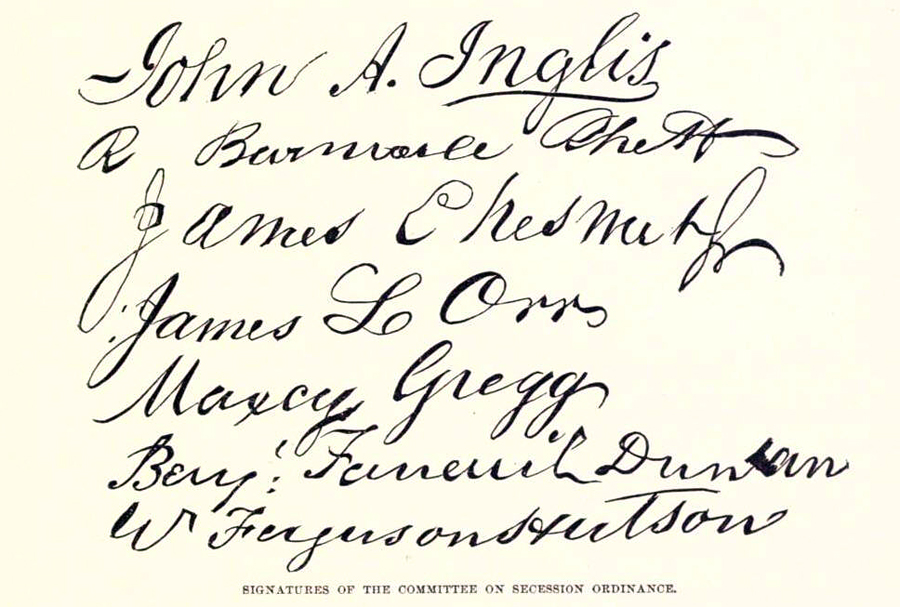 John A. Inglis
R Barnwell Rhett
James Chesnut Jr
James L Orr
Maxcy Gregg
Benj. Faneuil Duncan
W Ferguson Hutson
SIGNATURES OF THE COMMITTEE ON SECESSION ORDINANCE.